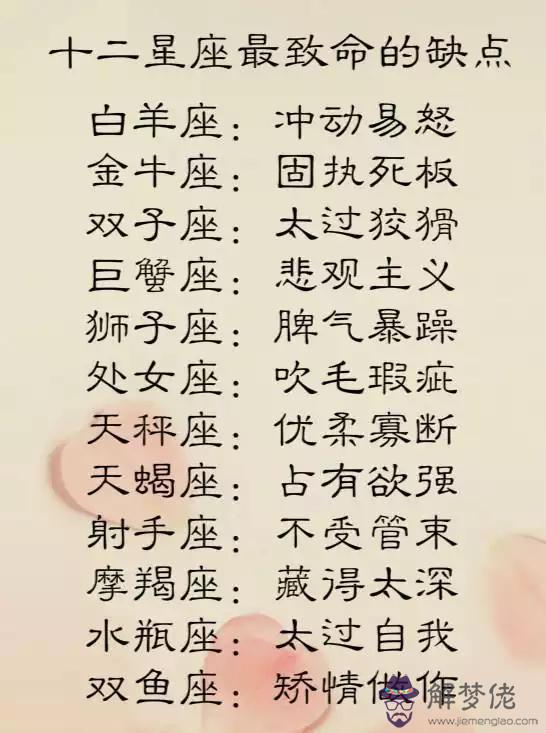 十二星座最致命的缺点
白羊座：冲动易怒
金牛座：固执死板
双子座：太过狡猾
巨蟹座：悲观主义
狮子座：脾气暴躁
处女座：吹毛瑕疵
天秤座：优柔寡断
天蝎座：占有欲强
射手座：不受管束
摩羯座：藏得太深
水瓶座：太过自我
双鱼座：矫情做作
解梦佬
www.jiemenglao.com